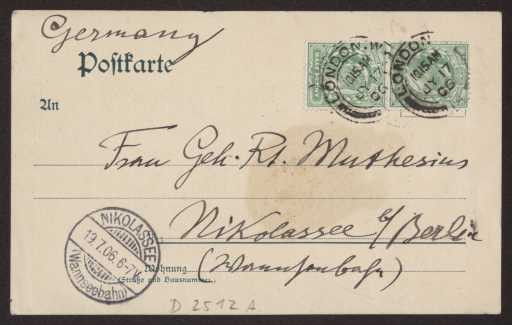 Germany
Postkarte
LONDON. W
10.15 AM
JY 17
06
LONDON. W
10.15 AM
JY 17
06
An
Frau Geh. Rt. Muthesius
Nikolassee b/Berlin
(Wannseebahn)
Wohnung
(Straße und Hausnummer)
NIKOLASSEE
19.7.06. 6-7N.
(Wannseebahn)
D 2512 A